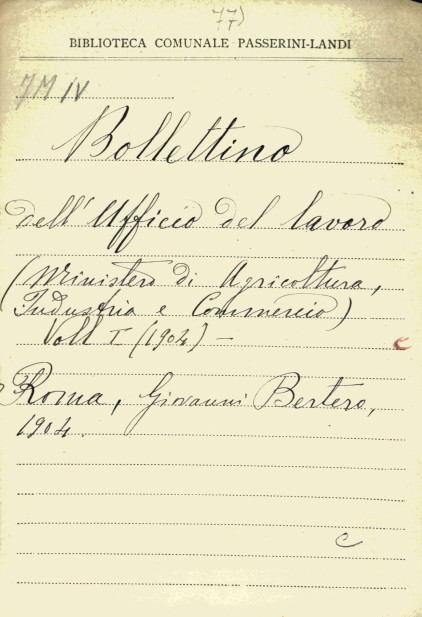 77)
BIBLIOTECA COMUNALE PASSERINI-LANDI
7M IV
Bollettino
dell'Ufficio del lavoro
(Ministero di Agricoltura,
Industria e Commercio)
Voll I (1904) —
c
Roma, Giovanni Bertero,
1904.
c